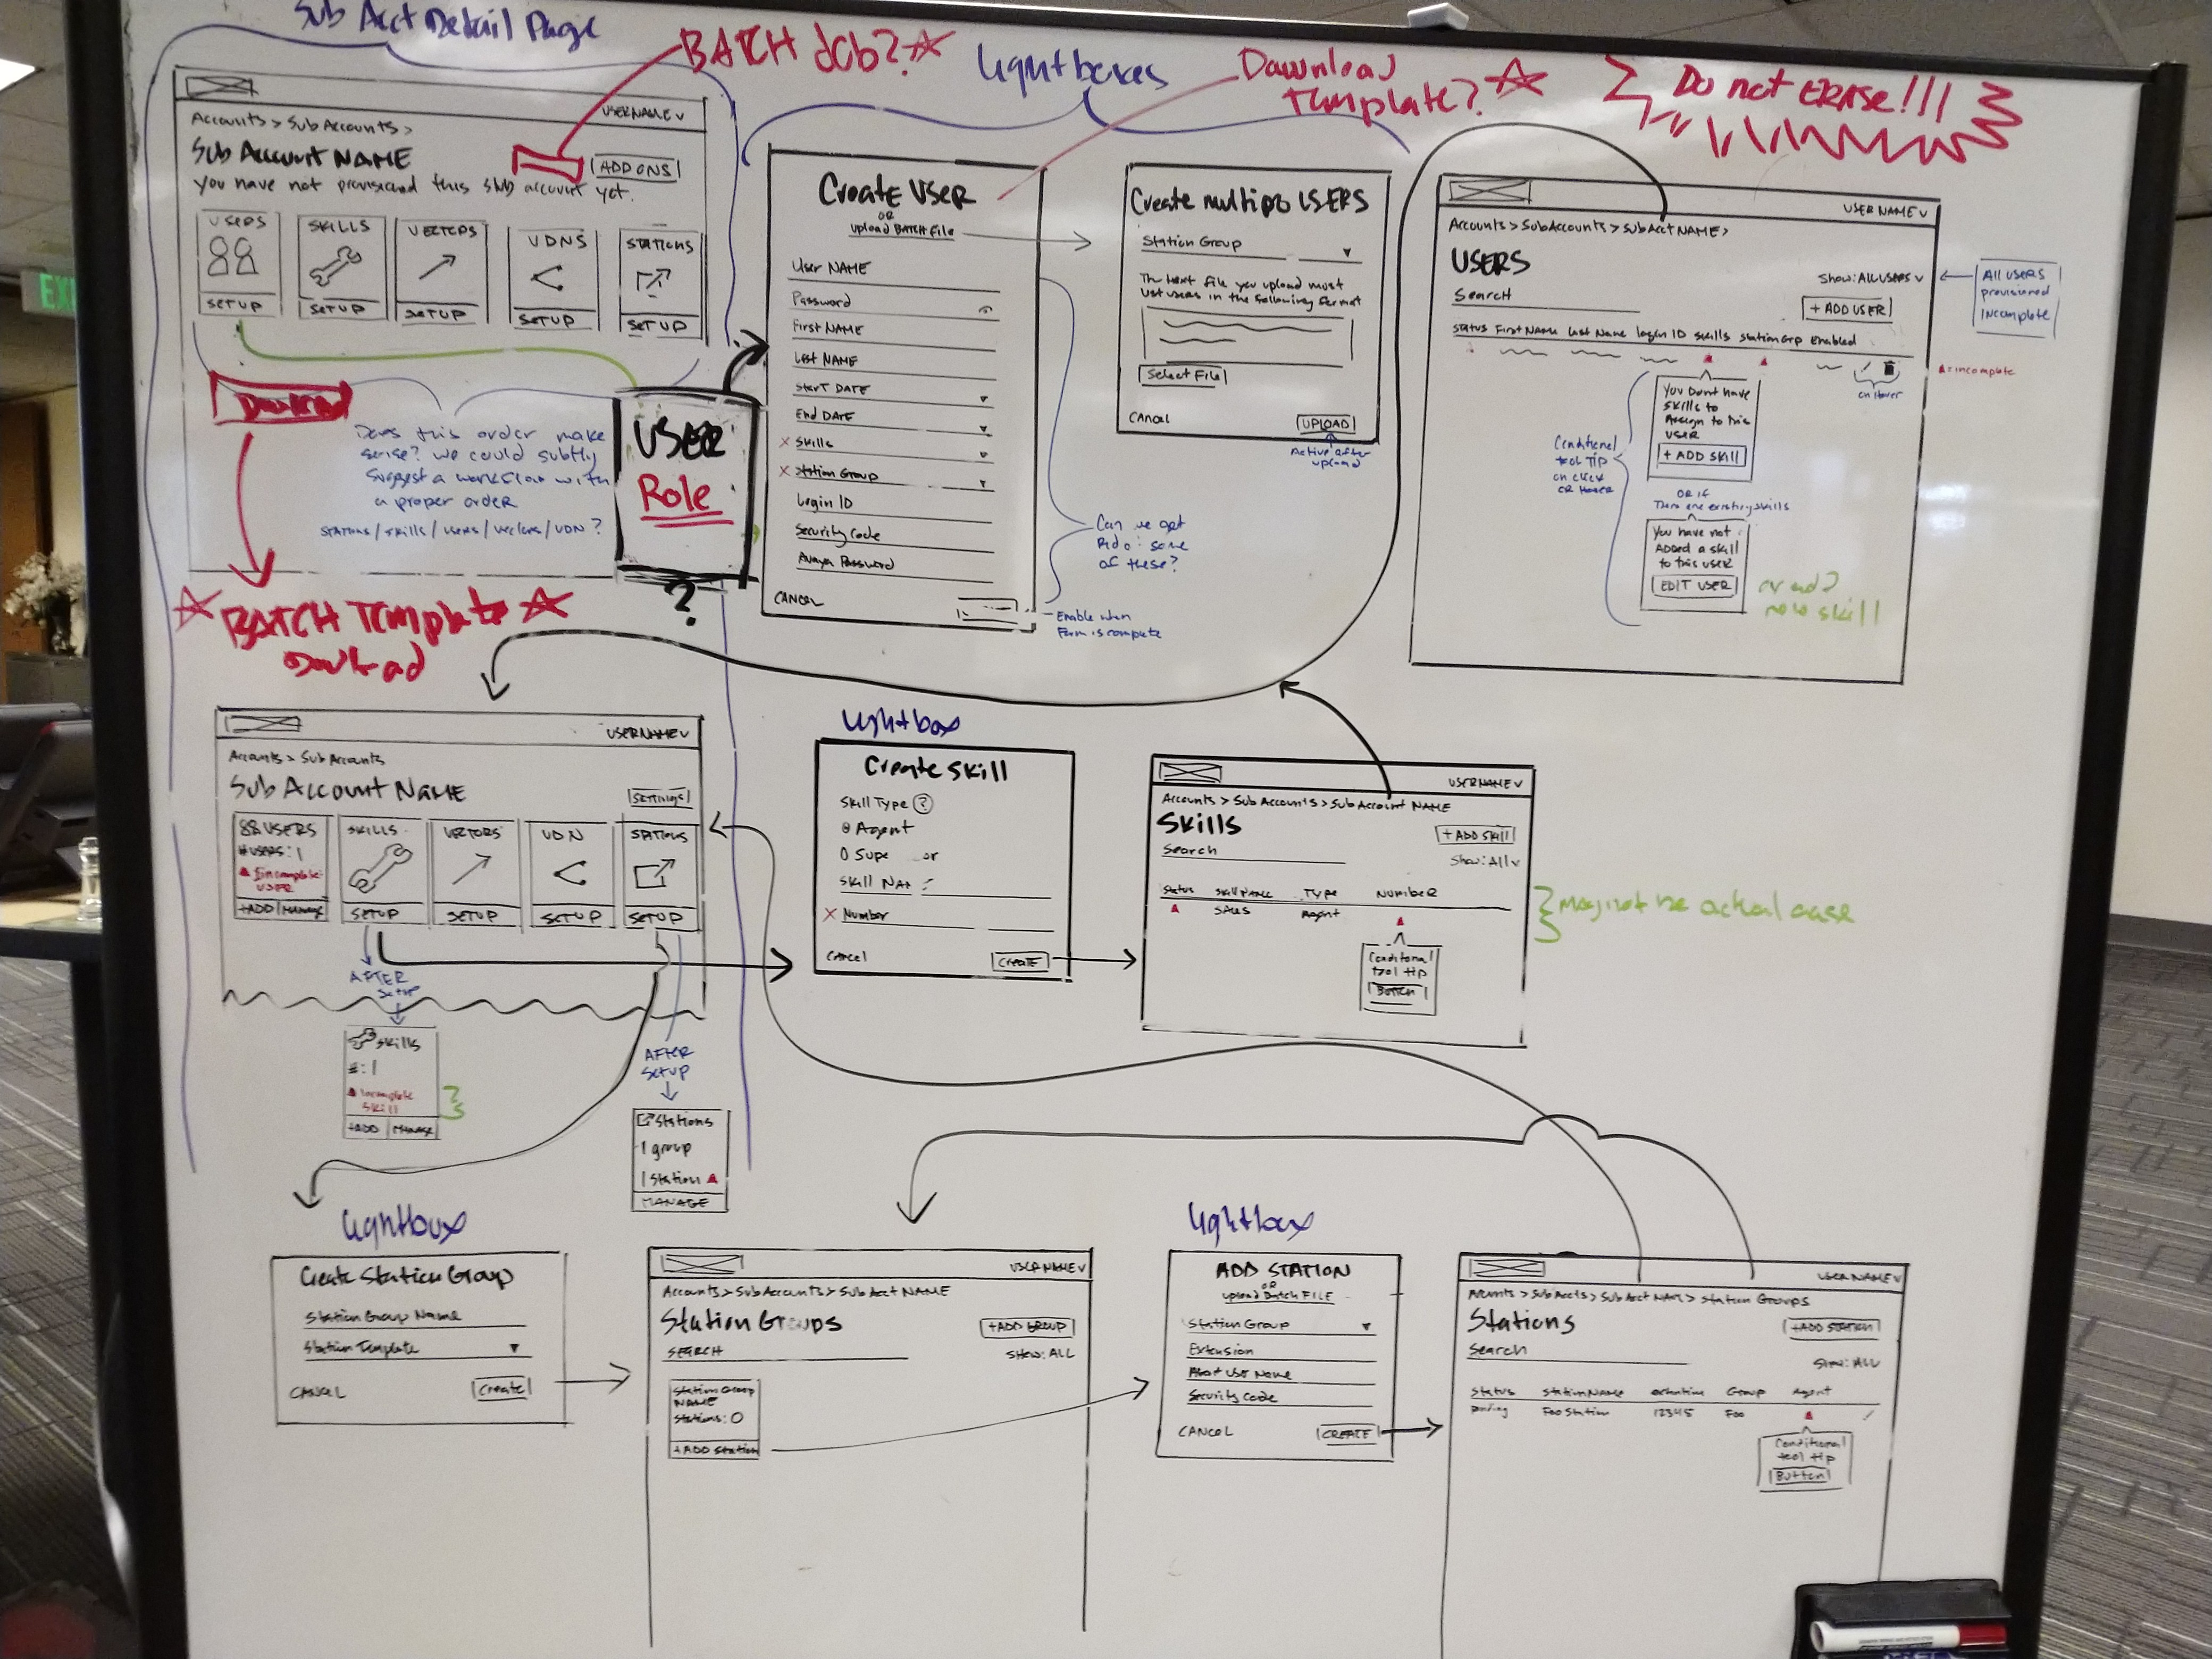 Sub Acct Detail Page
BATCH Job?
Lightboxes
Download
Template?
Do not ERASE!!!
USERNAME v
Accounts > Sub Accounts >
Sub Account NAME
ADD ONS
you have not provisioned this sub account yet.
USERS
SETUP
SKILLS
SETUP
VECTORS
SETUP
VDNS
SETUP
STATIONS
SETUP
Does this order make
sense? we could subtly
suggest a workflow with
a proper order
STATIONS/skills/users/vectors/VDN?
BATCH Template
USER
Role
?
Create USER
OR
upload BATCH file
User NAME
Password
First NAME
Last NAME
Start DATE
End DATE
x Skills
x Station Group
Login ID
Security Code
Avaya Password
CANCEL
Can we get
of these?
Enable when
Form is complete
Create multiple USERS
Station Group
The text file you upload must
list users in the following format
Select File
CANCEL
UPLOAD
Active after
upload
USER NAME v
Accounts > SubAccounts > SubAcct NAME >
USERS
Show: All USERS v
Search
+ ADD USER
Status First Name Last Name login ID skills station Grp Enabled
on Hover
All USERS
provisioned
Incomplete
= incomplete
You Dont have
skills to
Assign to this
USER
+ ADD SKILL
Conditional
tool TIP
on click
OR HOVER
OR if
There are existing skills
You have not
ADDED a skill
to this user
EDIT USER
or add
new skill
USERNAME v
Accounts > Sub Accounts
Sub Account NAME
Settings
USERS
# USERS: 1
incomplete
USER
+ADD | MANAGE
SKILLS
SETUP
VECTORS
SETUP
VDN
SETUP
STATIONS
SETUP
AFTER
Setup
Skills
#: 1
Incomplete
Skill
+ADD | MANAGE
AFTER
Setup
Stations
1 group
1 Station
MANAGE
lightbox
Create Skill
Skill Type ?
Agent
Number
Cancel
CREATE
USERNAME v
Accounts > Sub Accounts > Sub Account NAME
Skills
+ ADD SKILL
Search
Show: All v
Status
Skill NAME
TYPE
NUMBER
SALES
Agent
Conditional
tool tip
Button
May not be actual case
lightbox
Create Station Group
Station Group Name
Station Template
CANCEL
Create
USERNAME v
Accounts > Sub Accounts > Sub Acct NAME
Station Groups
+ADD GROUP
SEARCH
SHOW: ALL
Station Group
NAME
Stations: 0
+ADD Station
lightbox
ADD STATION
OR
upload Batch FILE
Station Group
Extension
User Name
Security Code
CANCEL
CREATE
USER NAME v
Accounts > Sub Accts > Sub Acct NAME > Station Groups
Stations
+ADD STATION
Search
Show: ALL
Status
Station NAME
extention
Group
Agent
pending
Foo Station
12345
Foo
Conditional
tool tip
Button